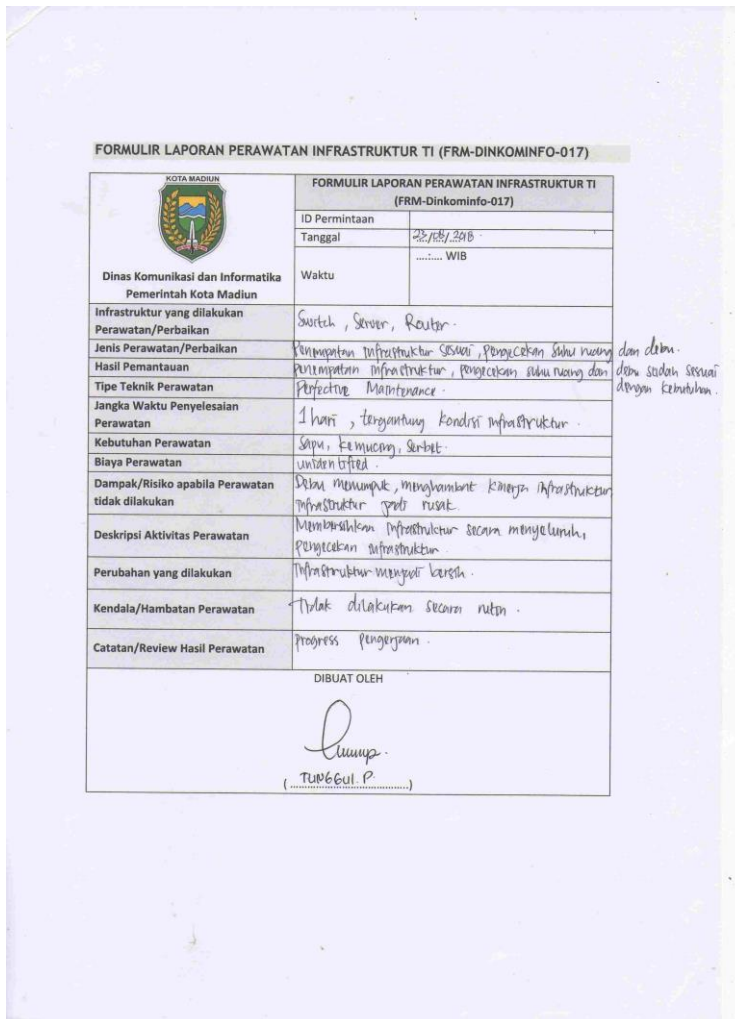 FORMULIR LAPORAN PERAWATAN INFRASTRUKTUR TI (FRM-DINKOMINFO-017)
KOTA MADIUN
Dinas Komunikasi dan Informatika
Pemerintah Kota Madiun
FORMULIR LAPORAN PERAWATAN INFRASTRUKTUR TI
(FRM-Dinkominfo-017)
ID Permintaan
Tanggal 23/ /2018
Waktu ....:.... WIB
Infrastruktur yang dilakukan
Perawatan/Perbaikan
Switch, Server, Router.
Jenis Perawatan/Perbaikan
Penempatan infrastruktur sesuai, pengecekan suhu ruang dan debu.
Hasil Pemantauan
Penempatan infrastruktur, pengecekan suhu ruang dan debu sudah sesuai
dengan kebutuhan.
Tipe Teknik Perawatan
Perfective Maintenance.
Jangka Waktu Penyelesaian
Perawatan
1 hari, tergantung kondisi infrastruktur.
Kebutuhan Perawatan
Sapu, kemucing, serbet.
Biaya Perawatan
unidentified.
Dampak/Risiko apabila Perawatan
tidak dilakukan
Debu menumpuk, menghambat kinerja infrastruktur,
infrastruktur jadi rusak.
Deskripsi Aktivitas Perawatan
Membersihkan infrastruktur secara menyeluruh,
pengecekan infrastruktur.
Perubahan yang dilakukan
Infrastruktur menjadi bersih.
Kendala/Hambatan Perawatan
Tidak dilakukan secara rutin.
Catatan/Review Hasil Perawatan
Progress pengerjaan.
DIBUAT OLEH
(TUNGGUL. P.)